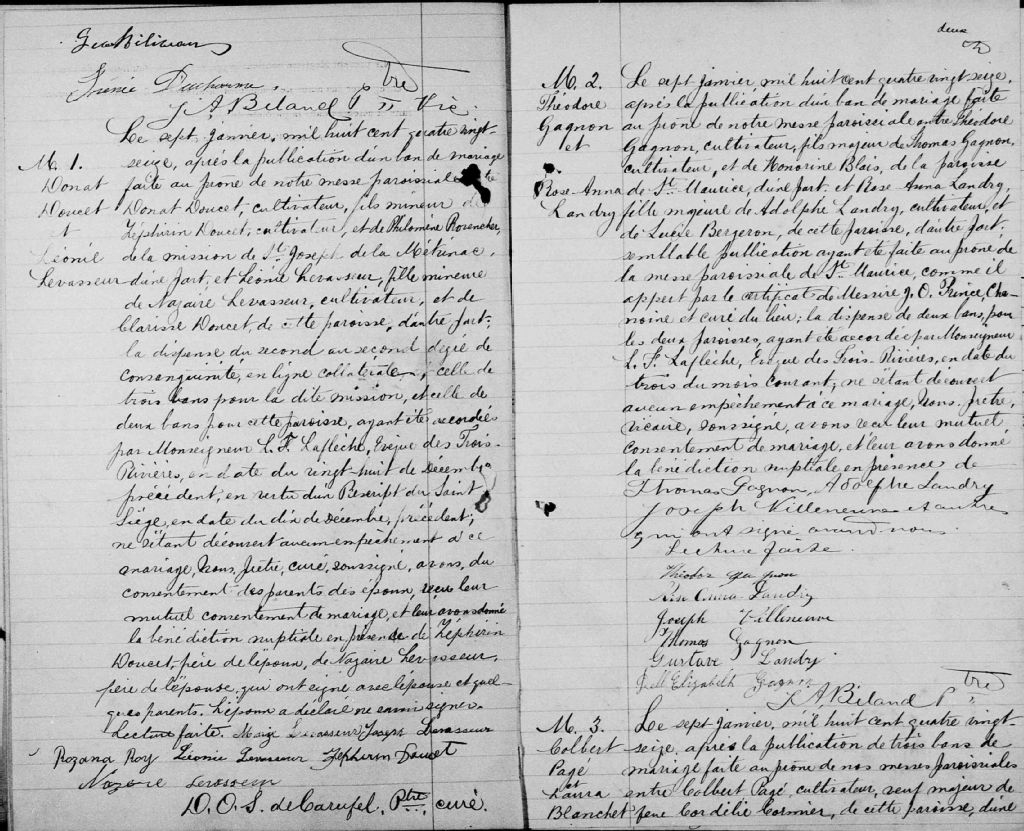 Irénée Ducharme.
J. A. Béland Ptre Vic.
M. 1.
Donat
Doucet
et
Léonie
Levasseur
Le sept janvier, mil huit cent quatre vingt-
seize, après la publication d'un ban de mariage
faite au prône de notre messe paroissiale
Donat Doucet, cultivateur, fils mineur de
Zéphirin Doucet, cultivateur, et de Philomène
de la mission de St. Joseph de la
d'une part, et Léonie Levasseur, fille mineure
de Nazaire Levasseur, cultivateur, et de
Clarisse Doucet, de cette paroisse, d'autre part;
la dispense du second au second degré de
consanguinité, en ligne collatérale, celle de
trois bans pour la dite mission, et celle de
deux bans pour cette paroisse, ayant été accordées
par Monseigneur L. F. Laflèche, Evêque des Trois-
Rivières, en date du vingt-huit de Décembre
précédent, en vertu d'un Rescript du Saint
Siège, en date du dix de Décembre, précédent;
ne s'étant découvert aucun empêchement à ce
mariage, Nous, Prêtre, curé, soussigné, avons, du
consentement des parents des époux, reçu leur
mutuel consentement de mariage, et leur avons donné
la bénédiction nuptiale en présence de Zéphirin
Doucet, père de l'époux, de Nazaire Levasseur,
père de l'épouse, qui ont signé avec l'épouse et quel-
ques parents. L'époux a déclaré ne savoir signer.
Lecture faite. Levasseur Joseph Levasseur
Rozana Roy Léonie Levasseur Zephirin Doucet
Nazaire Levasseur
D. O. S. de Carufel, Ptre curé.
deux
M. 2.
Théodore
Gagnon
et
Rose-Anna
Landry
Le sept janvier, mil huit cent quatre vingt seize,
après la publication d'un ban de mariage faite
au prône de notre messe paroissiale entre Théodore
Gagnon, cultivateur, fils majeur de Thomas Gagnon,
cultivateur, et de Honorine Blais, de la paroisse
de St. Maurice, d'une part; et Rose Anna Landry,
fille majeure de Adolphe Landry, cultivateur, et
de Lucie Bergeron, de cette paroisse, d'autre part;
semblable publication ayant été faite au prône de
la messe paroissiale de St. Maurice, comme il
appert par le certificat de Messire J. O. Prince, Cha-
noine et curé du lieu; la dispense de deux bans, pour
les deux paroisses, ayant été accordée par Monseigneur
L. F. Laflèche, Evêque des Trois-Rivières, en date du
trois du mois courant; ne s'étant découvert
aucun empêchement à ce mariage, nous, prêtre,
vicaire, soussigné, avons reçu leur mutuel
consentement de mariage, et leur avons donné
la bénédiction nuptiale en présence de
Thomas Gagnon, Adolphe Landry
Joseph Villeneuve et autres
qui ont signé avec nous.
Lecture faite.
Théodore Gagnon
Rose Anna Landry
Joseph Villeneuve
Thomas Gagnon
Gustave Landry
Elizabeth Gagnon
J. A. Béland Ptre
M. 3.
Colbert
Pagé
et
Laura
Blanchet
Le sept janvier, mil huit cent quatre vingt-
seize, après la publication de trois bans de
mariage faite au prône de nos messes paroissiales
entre Colbert Pagé, cultivateur, veuf majeur de
feue Cordélie Cormier, de cette paroisse, d'une